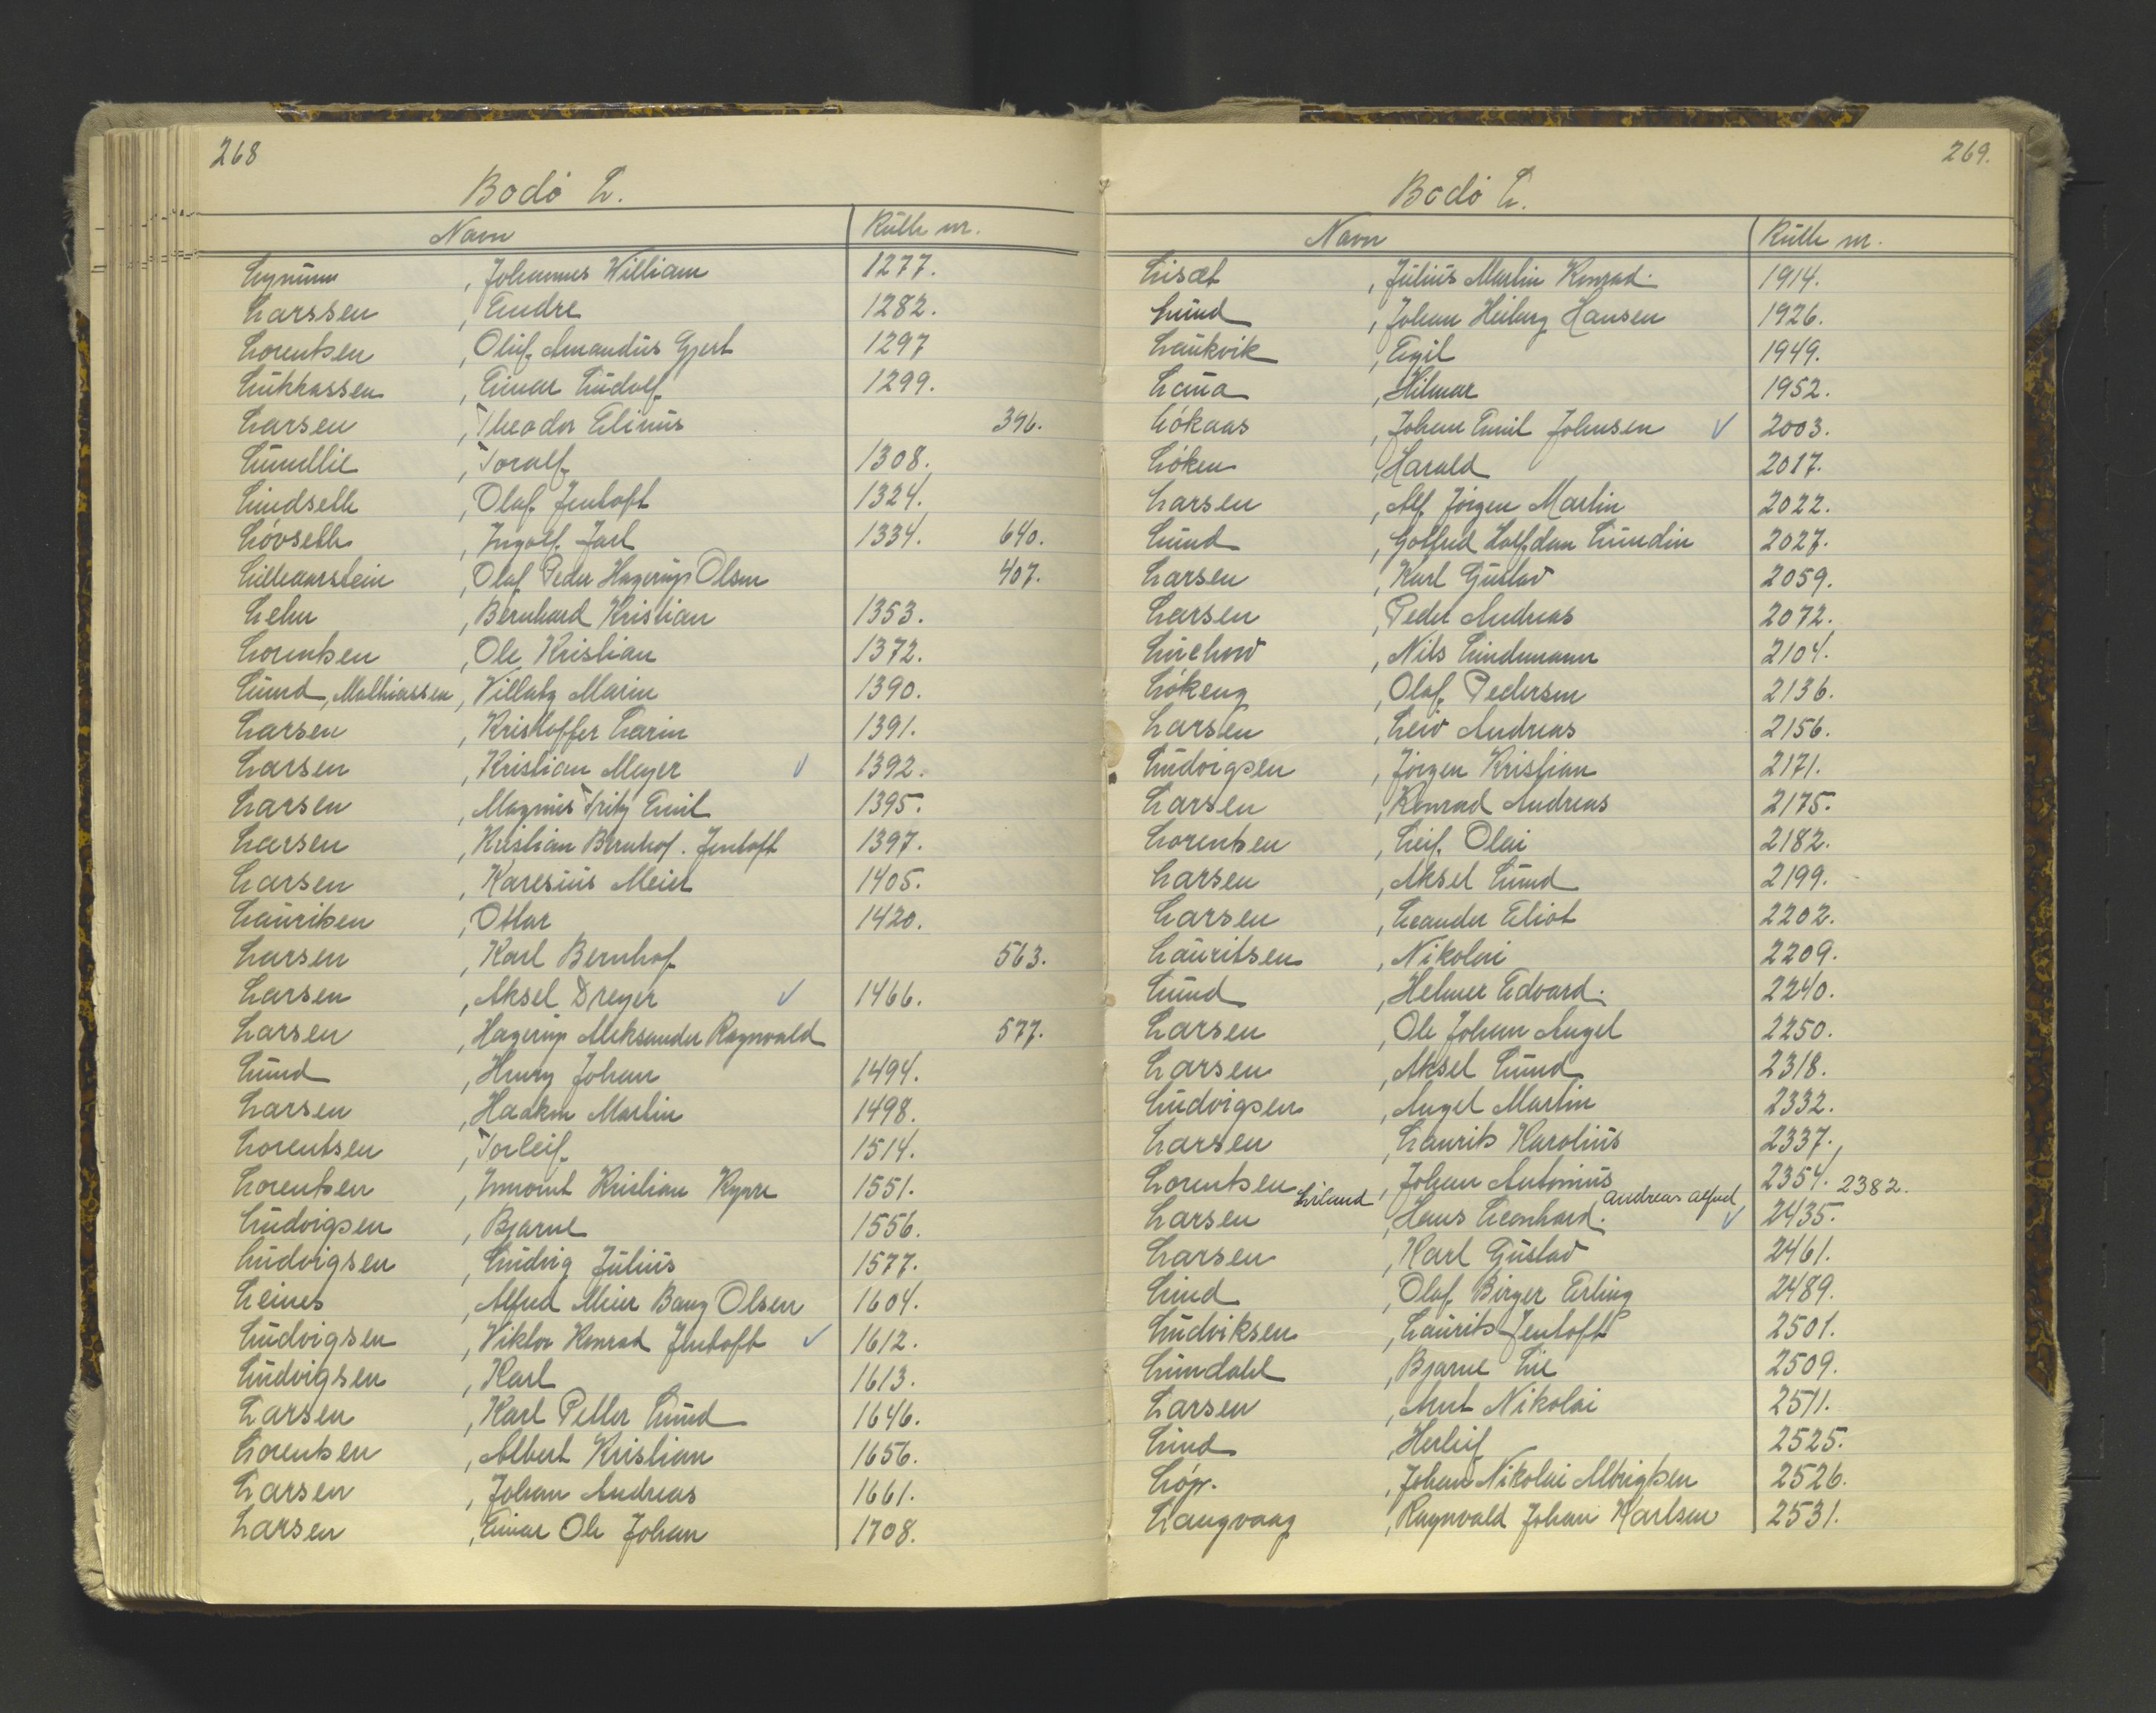 268
Bodø L.
Navn Rulle nr.
Lynum, Johannes William 1277.
Larssen, Endre 1282.
Lorentsen, Oluf Amandus Gjert 1297
Lukkassen, Einar Ludolf 1299.
Larsen, Theodor Elinus 396.
Lundlie, Toralf 1308.
Lindseth, Olaf Jentoft 1324.
Løvseth, Ingolf Jarl 1334. 640.
Lilleaarstein, Olaf Peder Hagerup Olsen 407.
Lehn, Bernhard Kristian 1353.
Lorentsen, Ole Kristian 1372.
Lund, Mathiassen, Villaby Marin 1390.
Larsen, Kristoffer Larin 1391.
Larsen, Kristian Meyer ✓ 1392.
Larsen, Magnus Fritz Emil 1395.
Larsen, Kristian Bernhof. Jentoft 1397.
Larsen, Karesius Meier 1405.
Lauritsen, Ottar 1420.
Larsen, Karl Bernhof 563.
Larsen, Aksel Dreyer ✓ 1466.
Larsen, Hagerup Aleksander Ragnvald 577.
Lund, Henry Johan 1494.
Larsen, Haakon Martin 1498.
Lorentsen, Torleif 1514.
Lorentsen, Kristian 1551.
Ludvigsen, Bjarne 1556.
Ludvigsen, Ludvig Julius 1577.
Leines, Alfred Meier Bang Olsen 1604.
Ludvigsen, Viktor Konrad Jentoft ✓ 1612.
Ludvigsen, Karl 1613.
Larsen, Karl Petter Lund 1646.
Lorentsen, Albert Kristian 1656.
Larsen, Johan Andreas 1661.
Larsen, Einar Ole Johan 1708.
269.
Bodø L.
Navn Rulle nr.
Lisæt, Julius Martin Konrad. 1914.
Lund, Johan Heiberg Hansen 1926.
Laukvik, Egil 1949.
Laua, Hilmar 1952.
Løkaas, Johan Emil Johnsen ✓ 2003.
Løken, Harald 2017.
Larsen, Alf Jørgen Martin 2022.
Lund, Gotfred Halfdan Lundin 2027.
Larsen, Karl Gustav 2059.
Larsen, Peder Andreas 2072.
Lüchow, Nils Lindemann 2104.
Løkeng, Olaf Pedersen 2136.
Larsen, Leiv Andreas 2156.
Ludvigsen, Jørgen Kristian 2171.
Larsen, Konrad Andreas 2175.
Lorentsen, Leif Olai 2182.
Larsen, Aksel Lund 2199.
Larsen, Leander Eliot 2202.
Lauritsen, Nikolai 2209.
Lund, Helmer Edvard. 2240.
Larsen, Ole Johan Angel 2250.
Larsen, Aksel Lund 2318.
Ludvigsen, Angel Martin 2332.
Larsen, Laurits Karolius 2337.
Lorentsen, Johan Antonius 2354.
Liland Andreas Alfred 2382.
Larsen, Hans Leonhard. ✓ 2435.
Larsen, Karl Gustav 2461.
Lind, Olaf Birger Erling 2489.
Ludviksen, Laurits Jentoft 2501.
Lundahl, Bjarne Lie 2509.
Larsen, Arnt Nikolai 2511.
Lund, Herleif 2525.
Løp., Johan Nikolai Albrigtsen 2526.
Langvaag, Ragnvald Johan Karlsen 2531.